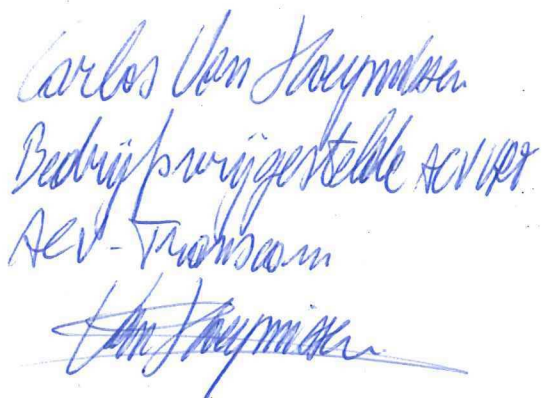 Carlos Van Hoeymissen
Bedrijfsvrijgestelde ACV VRT
ACV-Transcom
Van Hoeymissen